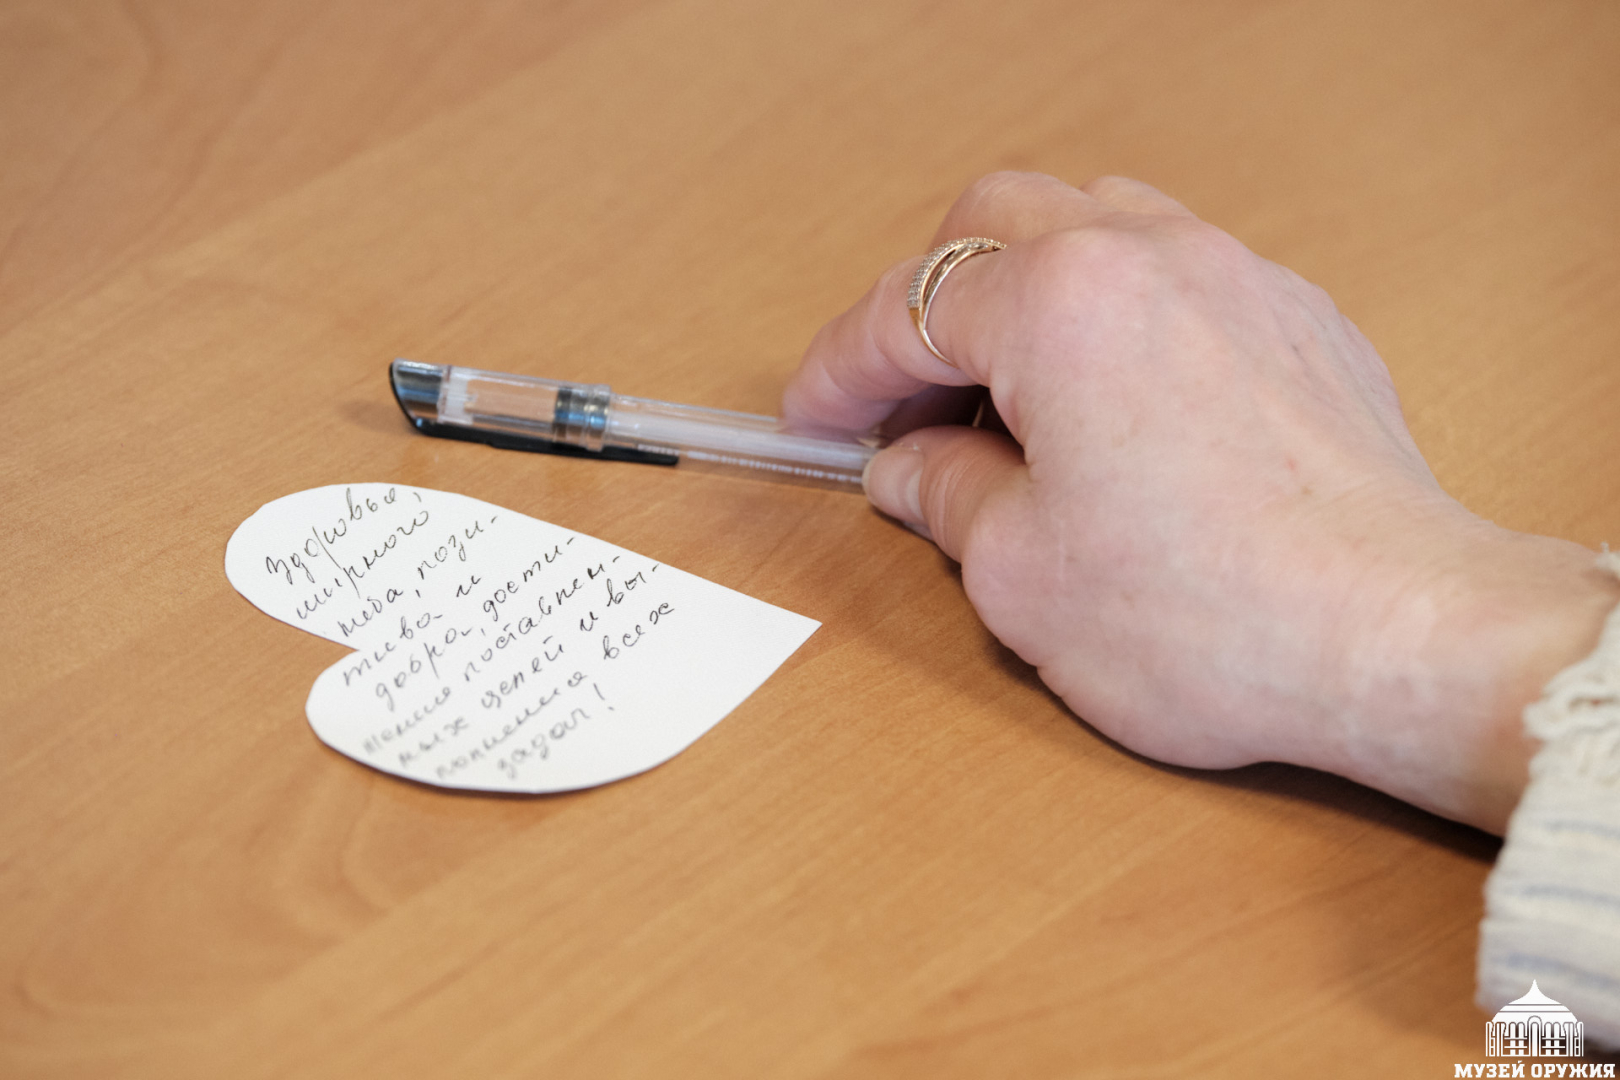 Здоровья,
мирного
неба, пози-
тива и
добра, дости-
жения поставлен-
ных целей и вы-
полнения всех
задач!
МУЗЕЙ ОРУЖИЯ